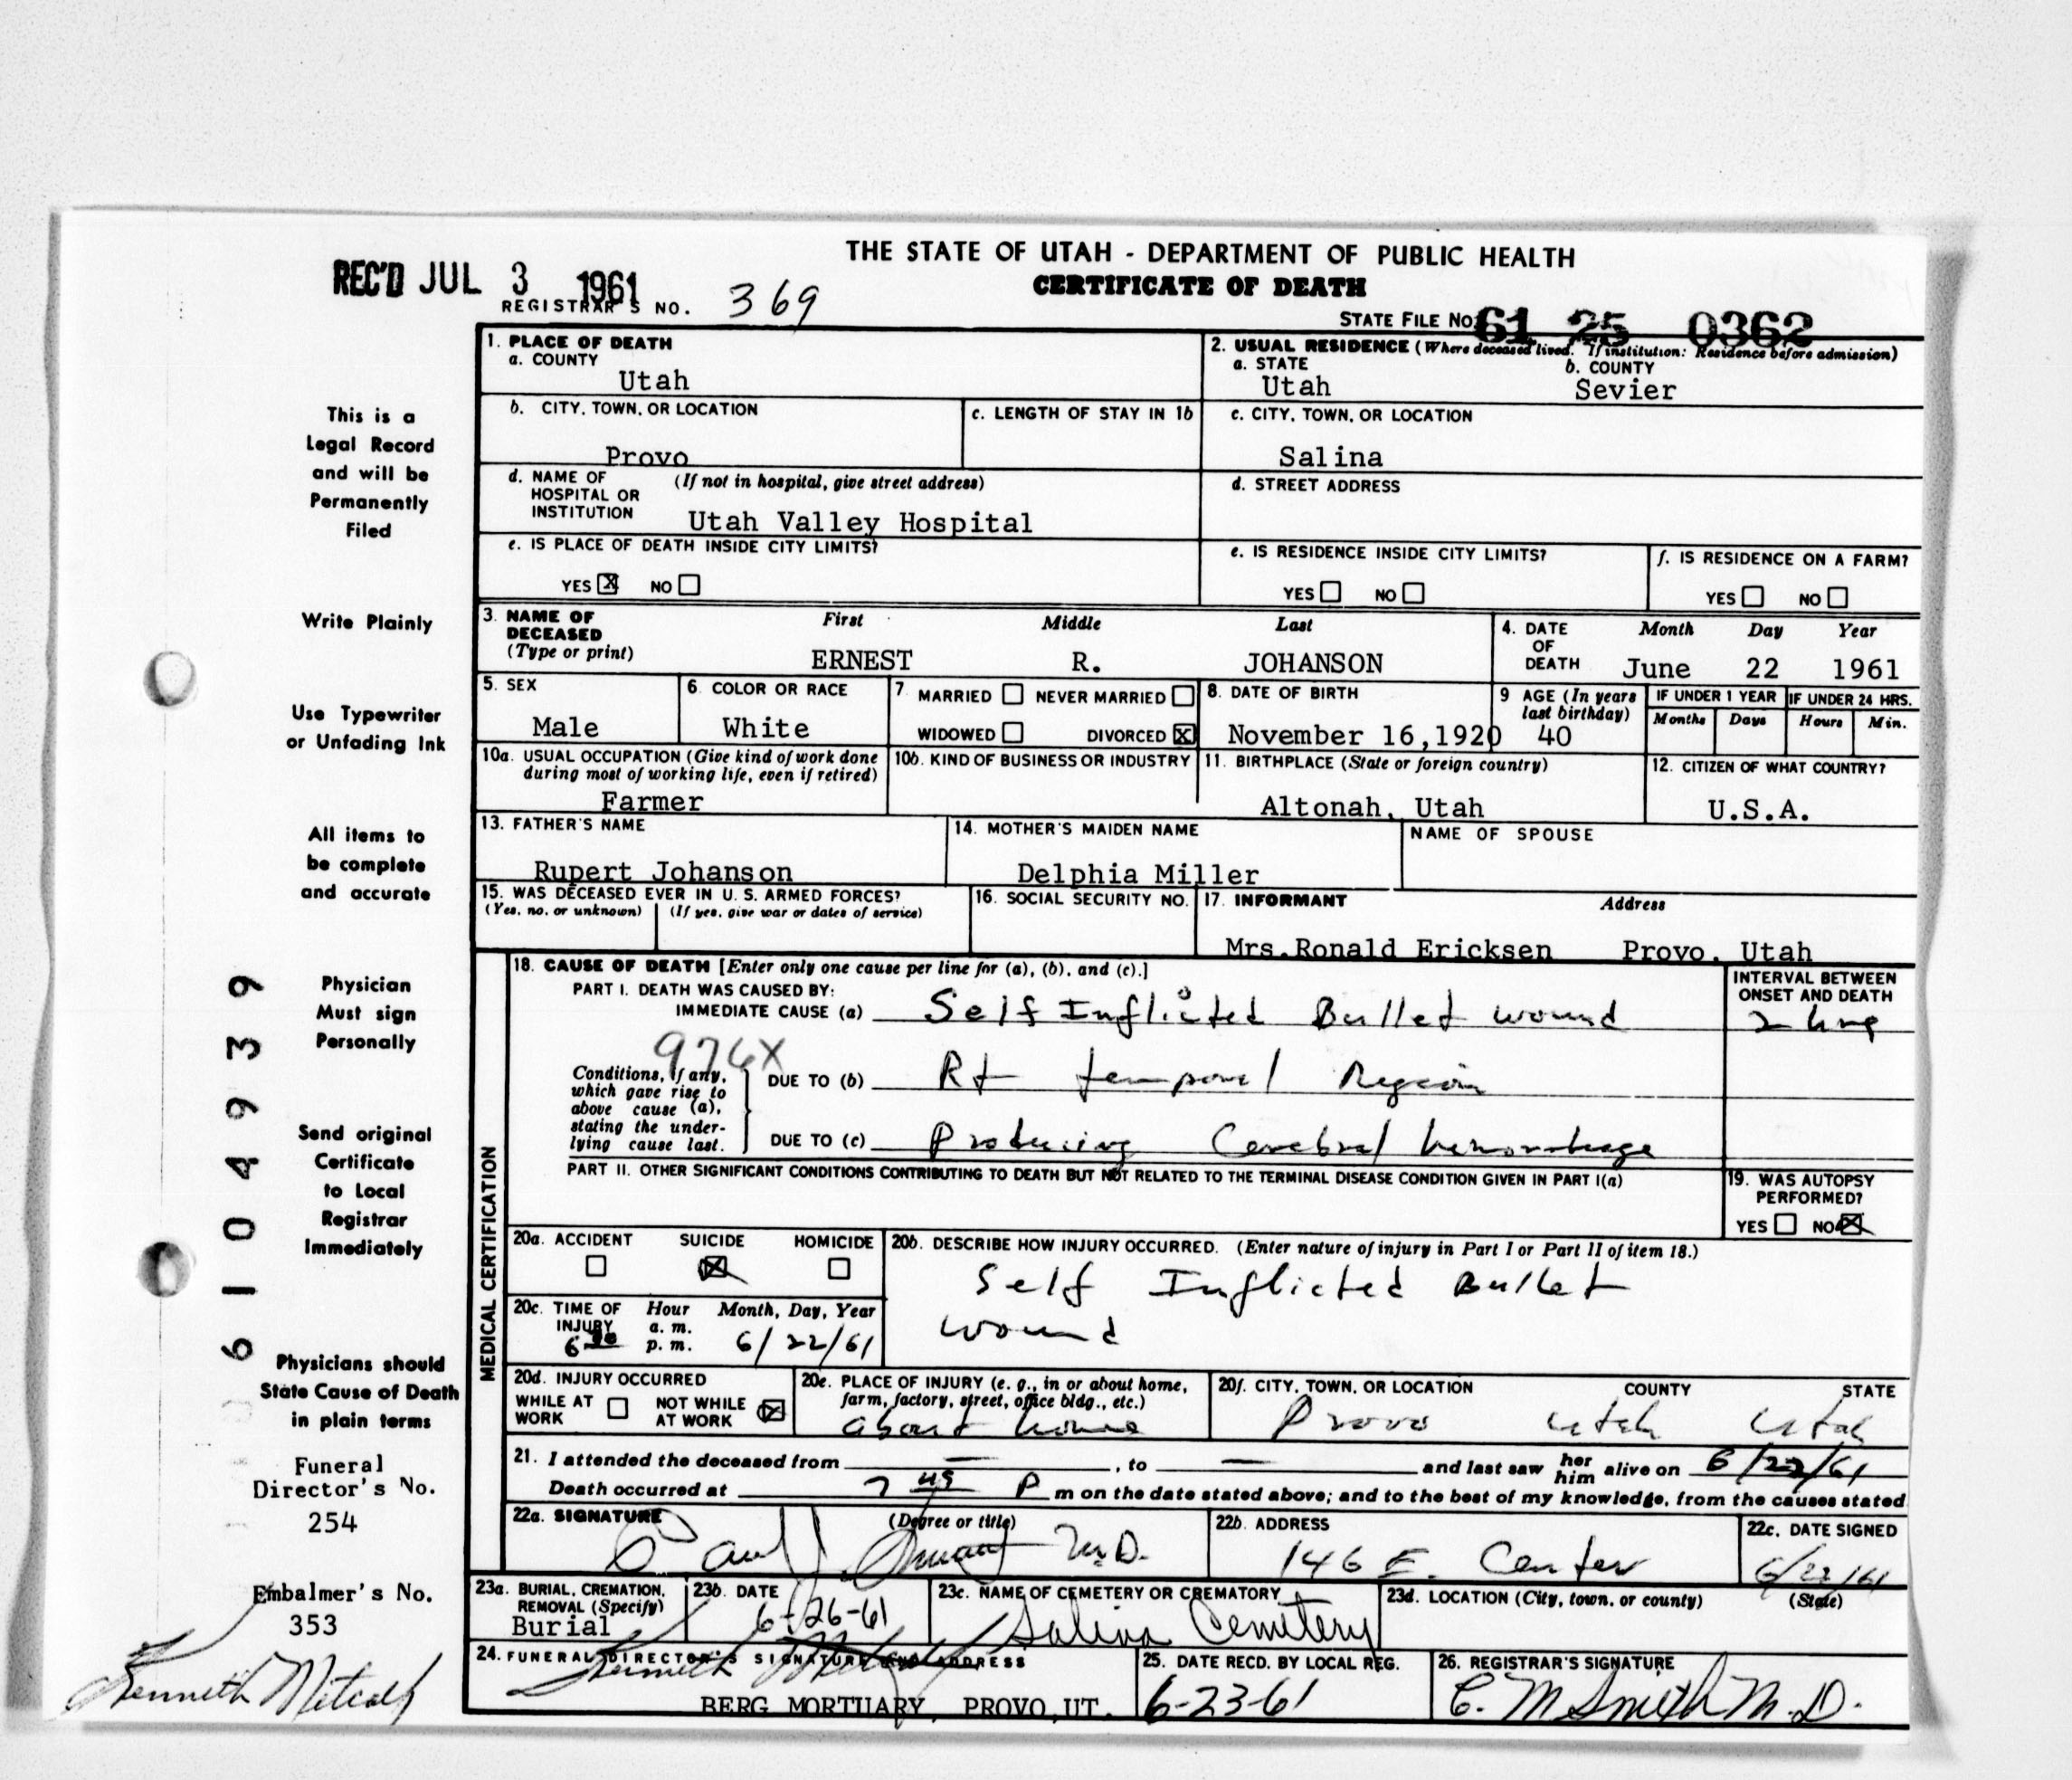 THE STATE OF UTAH - DEPARTMENT OF PUBLIC HEALTH
CERTIFICATE OF DEATH
REC'D JUL 3 1961
REGISTRAR'S NO. 369
STATE FILE NO. 61 25 0362
This is a
Legal Record
and will be
Permanently
Filed
Write Plainly
Use Typewriter
or Unfading Ink
All items to
be complete
and accurate
Physician
Must sign
Personally
Send original
Certificate
to Local
Registrar
Immediately
Physicians should
State Cause of Death
in plain terms
Funeral
Director's No.
254
Embalmer's No.
353
Kenneth Metcalf
6104939
1. PLACE OF DEATH
a. COUNTY
Utah
2. USUAL RESIDENCE (Where deceased lived. If institution: Residence before admission)
a. STATE b. COUNTY
Utah Sevier
b. CITY, TOWN, OR LOCATION
Provo
c. LENGTH OF STAY IN 1b
c. CITY, TOWN, OR LOCATION
Salina
d. NAME OF HOSPITAL OR INSTITUTION (If not in hospital, give street address)
Utah Valley Hospital
d. STREET ADDRESS
e. IS PLACE OF DEATH INSIDE CITY LIMITS?
YES X NO
e. IS RESIDENCE INSIDE CITY LIMITS?
YES NO
f. IS RESIDENCE ON A FARM?
YES NO
3. NAME OF DECEASED (Type or print) First Middle Last
ERNEST R. JOHANSON
4. DATE OF DEATH Month Day Year
June 22 1961
5. SEX
Male
6. COLOR OR RACE
White
7. MARRIED NEVER MARRIED
WIDOWED DIVORCED X
8. DATE OF BIRTH
November 16,1920
9 AGE (In years last birthday)
40
IF UNDER 1 YEAR IF UNDER 24 HRS.
Months Days Hours Min.
10a. USUAL OCCUPATION (Give kind of work done during most of working life, even if retired)
Farmer
10b. KIND OF BUSINESS OR INDUSTRY
11. BIRTHPLACE (State or foreign country)
Altonah, Utah
12. CITIZEN OF WHAT COUNTRY?
U.S.A.
13. FATHER'S NAME
Rupert Johanson
14. MOTHER'S MAIDEN NAME
Delphia Miller
NAME OF SPOUSE
15. WAS DECEASED EVER IN U. S. ARMED FORCES?
(Yes, no, or unknown) (If yes, give war or dates of service)
16. SOCIAL SECURITY NO.
17. INFORMANT Address
Mrs.Ronald Ericksen Provo, Utah
MEDICAL CERTIFICATION
18. CAUSE OF DEATH [Enter only one cause per line for (a), (b), and (c).]
PART I. DEATH WAS CAUSED BY:
IMMEDIATE CAUSE (a) Self Inflicted Bullet wound
INTERVAL BETWEEN ONSET AND DEATH
2 hrs
976X
Conditions, if any, which gave rise to above cause (a), stating the underlying cause last.
DUE TO (b) Rt temporal Region
DUE TO (c) Producing Cerebral hemorrhage
PART II. OTHER SIGNIFICANT CONDITIONS CONTRIBUTING TO DEATH BUT NOT RELATED TO THE TERMINAL DISEASE CONDITION GIVEN IN PART I(a)
19. WAS AUTOPSY PERFORMED?
YES NO X
20a. ACCIDENT SUICIDE HOMICIDE
X
20b. DESCRIBE HOW INJURY OCCURRED. (Enter nature of injury in Part I or Part II of item 18.)
Self Inflicted Bullet
wound
20c. TIME OF INJURY Hour Month, Day, Year
a. m.
p. m. 6/22/61
20d. INJURY OCCURRED
WHILE AT WORK NOT WHILE AT WORK X
20e. PLACE OF INJURY (e. g., in or about home, farm, factory, street, office bldg., etc.)
about home
20f. CITY, TOWN, OR LOCATION COUNTY STATE
Provo Utah Utah
21. I attended the deceased from — , to — and last saw her him alive on 6/22/61
Death occurred at 7 45 P m on the date stated above; and to the best of my knowledge, from the causes stated
22a. SIGNATURE (Degree or title)
M.D.
22b. ADDRESS
146 E. Center
22c. DATE SIGNED
6/22/61
23a. BURIAL, CREMATION, REMOVAL (Specify)
Burial
23b. DATE
6-26-61
23c. NAME OF CEMETERY OR CREMATORY
Salina Cemetery
23d. LOCATION (City, town, or county) (State)
24. FUNERAL DIRECTOR'S SIGNATURE AND ADDRESS
Kenneth Metcalf
BERG MORTUARY, PROVO,UT.
25. DATE RECD. BY LOCAL REG.
6-23-61
26. REGISTRAR'S SIGNATURE
C. M Smith M.D.